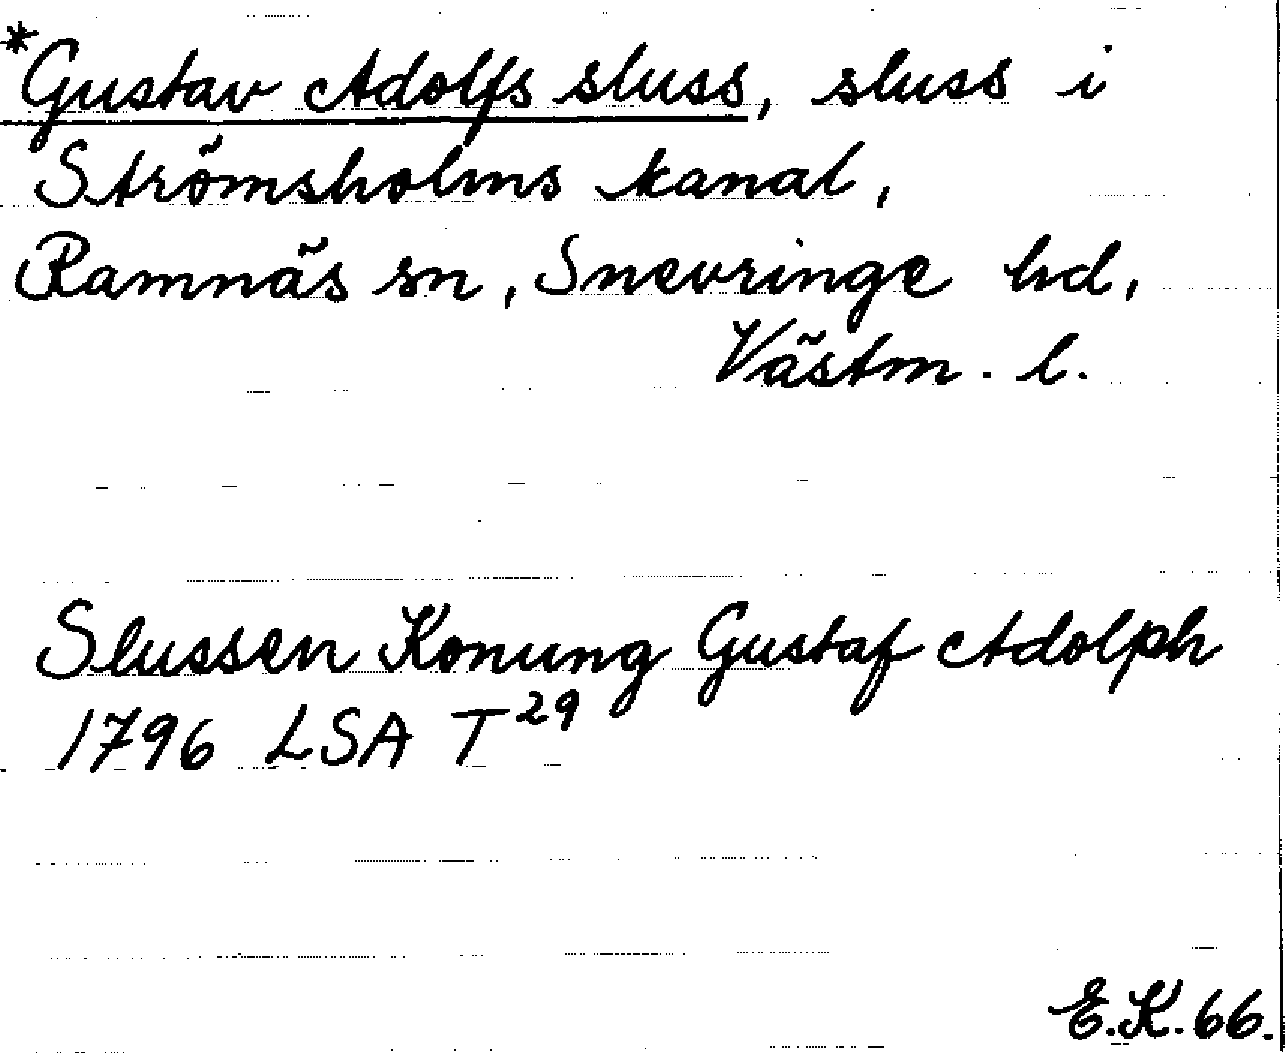 *Gustav Adolfs sluss, sluss i
Strömsholms kanal,
Ramnäs sn, Snevringe hd,
Västm. l.
Slussen Konung Gustaf Adolph
1796 LSA T²⁹
E.K. 66.